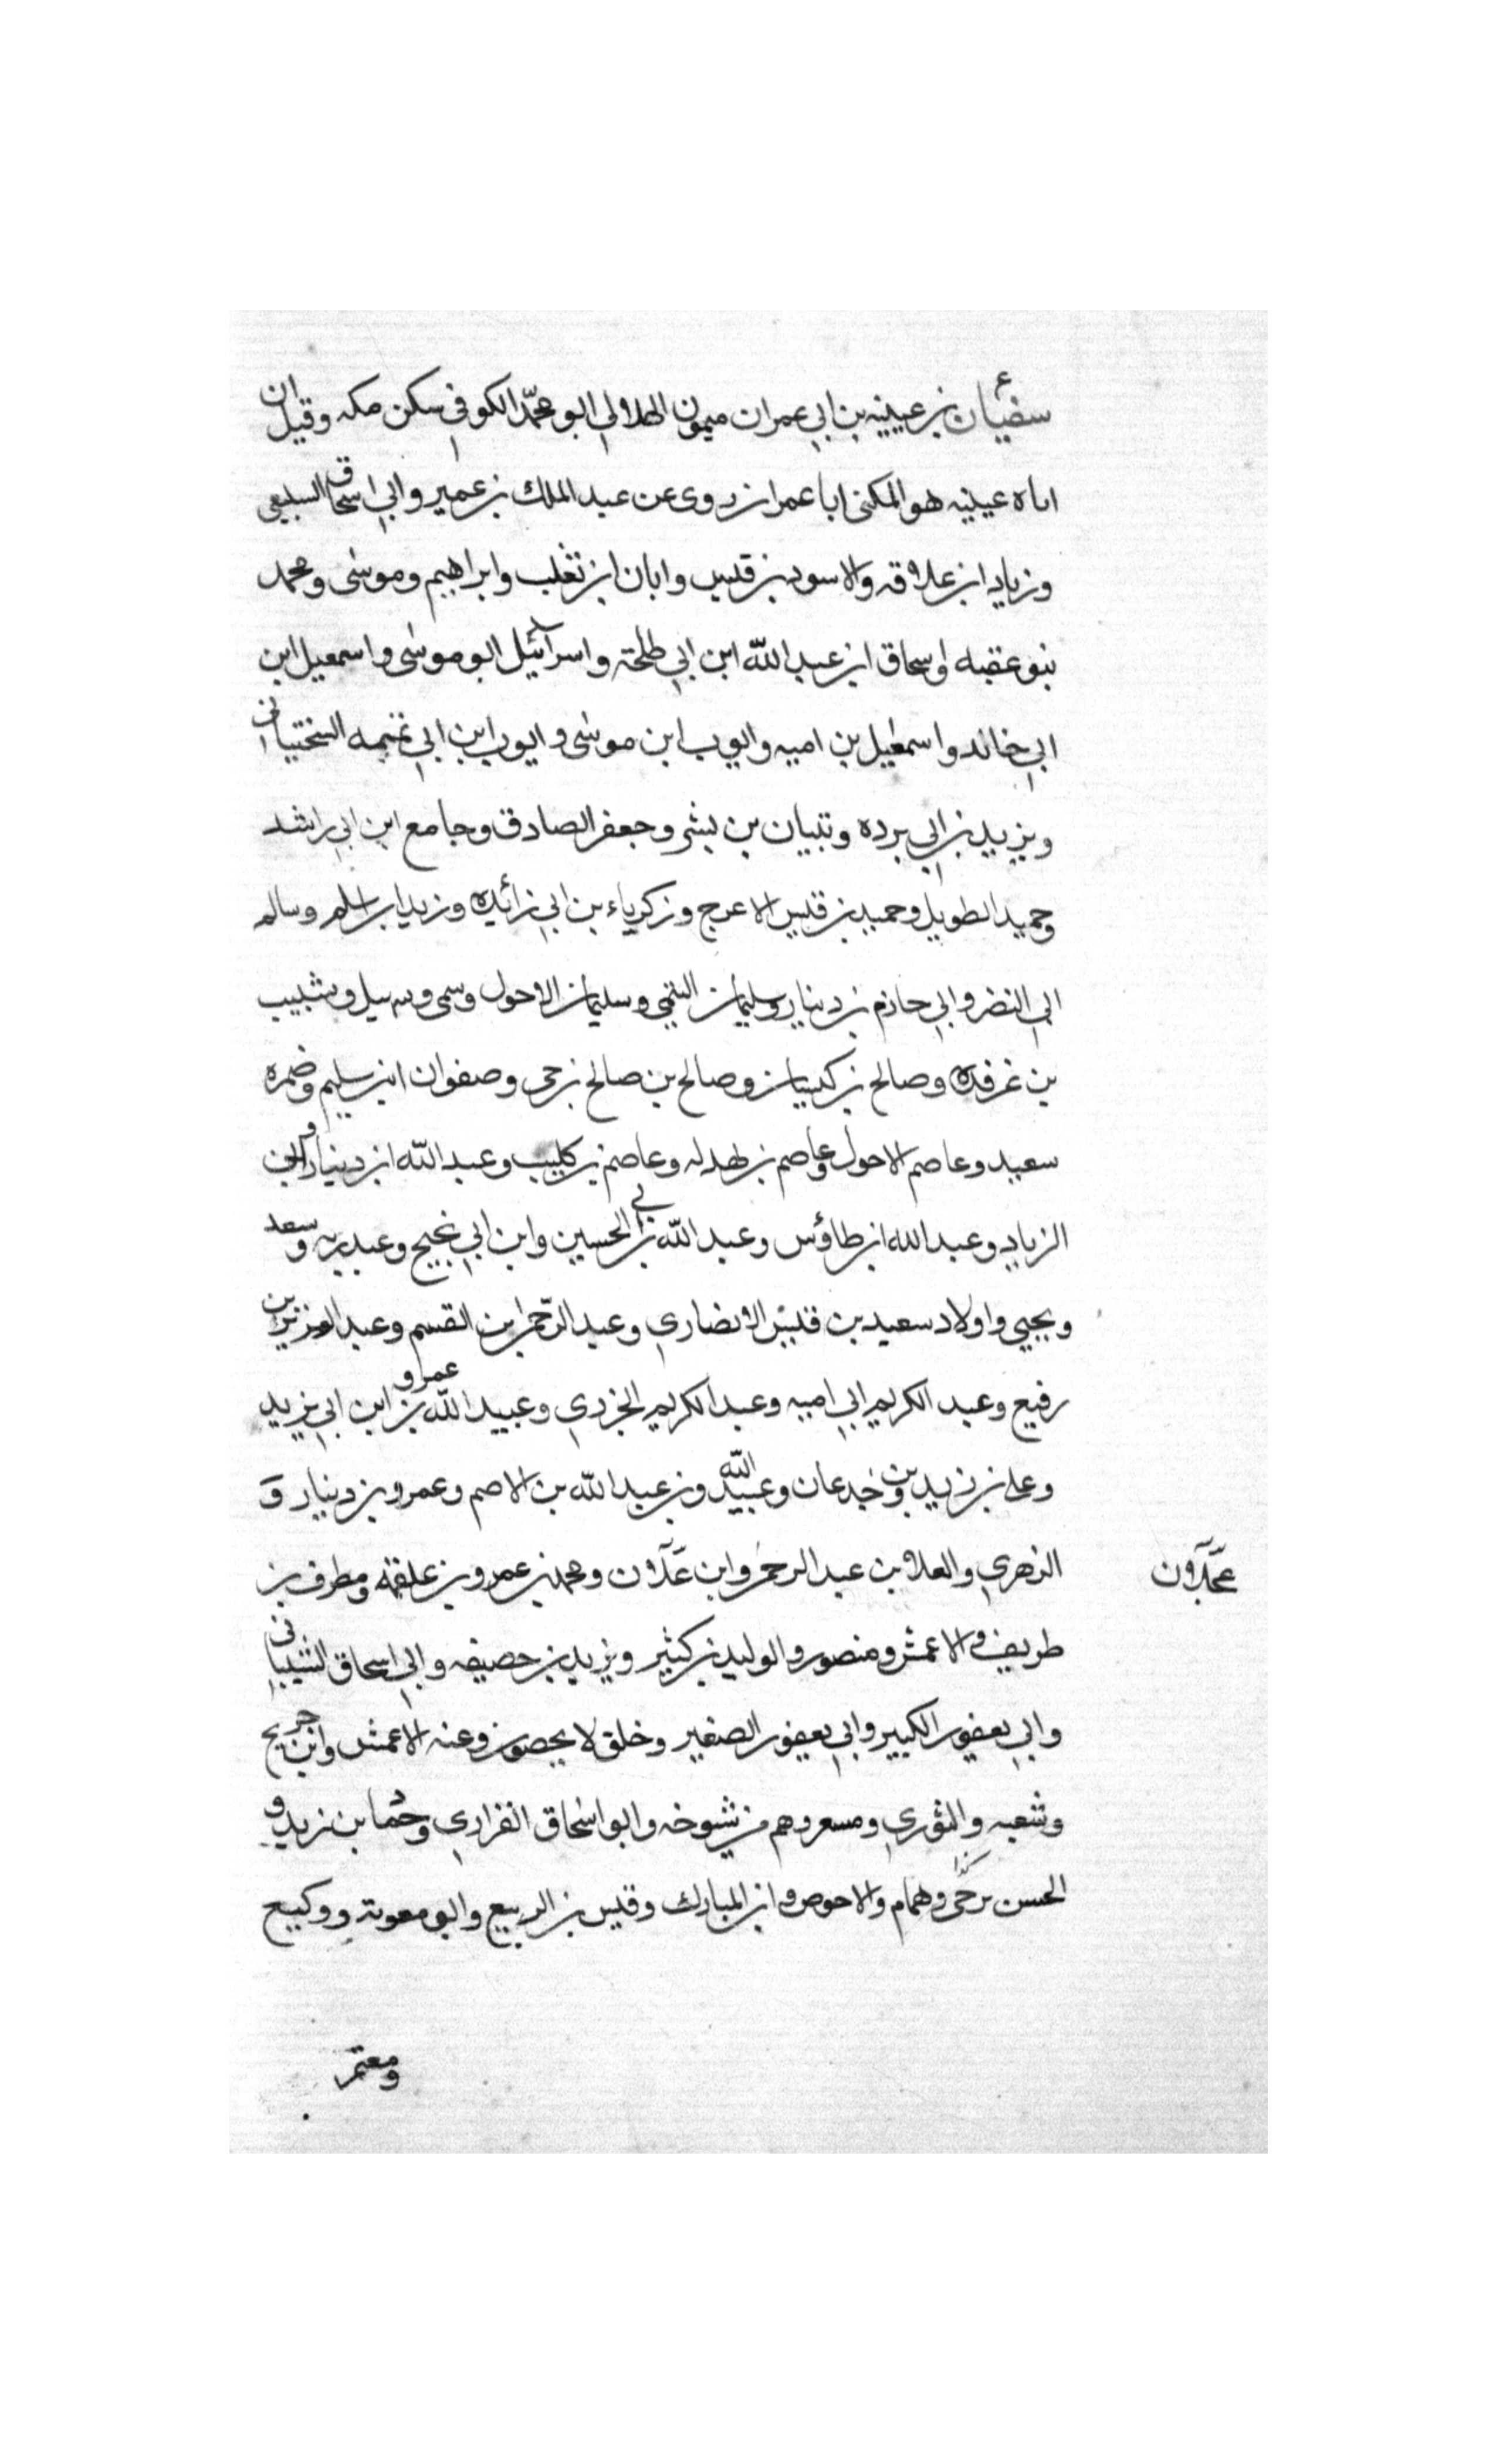 سفيان بن عيينه بن ابي عمران ميمون الهلالي ابو محمّد الكوفي سكن مكه وقيل ان
اباه عيينه هو المكنى ابا عمران روى عن عبد الملك بن عمير وابي اسحاق السبيعي
وزياد ابن علاقه والاسود بن قليس وابان ابن تغلب وابراهيم وموسى ومحمد
بنو عقبه واسحاق ابن عبد الله ابن ابي طلحة واسرائيل ابو موسى واسمعيل ابن
ابي خالد واسمعيل بن اميه وايوب ابن موسى وايوب ابن ابي تميمه السختياني
ويزيد بن ابي برده وتبيان بن بشر وجعفر الصادق وجامع ابن ابي راشد
وحميد الطويل وحميد بن قليس الاعرج وزكرياء بن ابي زائده وزيد ابن اسلم وسالم
ابي النضر وابي حازم بن دينار وسليمان التيمي وسليمان الاحول وسمى وسهيل وشبيب
بن غرفده وصالح بن كيسان وصالح بن صالح بن حى وصفوان ابن سليم وضمره
سعيد وعاصم الاحول وعاصم بن بهدله وعاصم بن كليب وعبد الله ابن دينار وابي
الزياد وعبد الله ابن طاؤس وعبد الله بن ابي الحسين وابن ابي نجيح وعبد ربه وسعد
ويحيي واولاد سعيد بن قيس الانصاري وعبد الرّحمن ابن القسم وعبد العزيز بن
رفيع وعبد الكريم ابي اميه وعبد الكريم الجزري وعبيد الله بن عمرو ابن ابي يزيد
وعلى بن زيد بن جدعان وعبيد الله وبن عبد الله بن الاصم وعمرو بن دينار و
الزهري والعلا بن عبد الرحمن وابن عجلان ومحمد بن عمرو بن علقمه ومطرف بن
عجلان
طريف والاعمش ومنصور والوليد بن كثير ويزيد بن حصيفه وابي اسحاق الشيباني
وابي يعفور الكبير وابي يعفور الصغير وخلق لا يحصون وعنه الاعمش وابن جريج
وشعبه والثوري ومسعر وهم من شيوخه وابو اسحاق الفزاري وحماد بن زيد و
الحسن بن حى وهمام والاحوص وابن المبارك وقيس بن الربيع وابو معوية ووكيع
ومعتمر